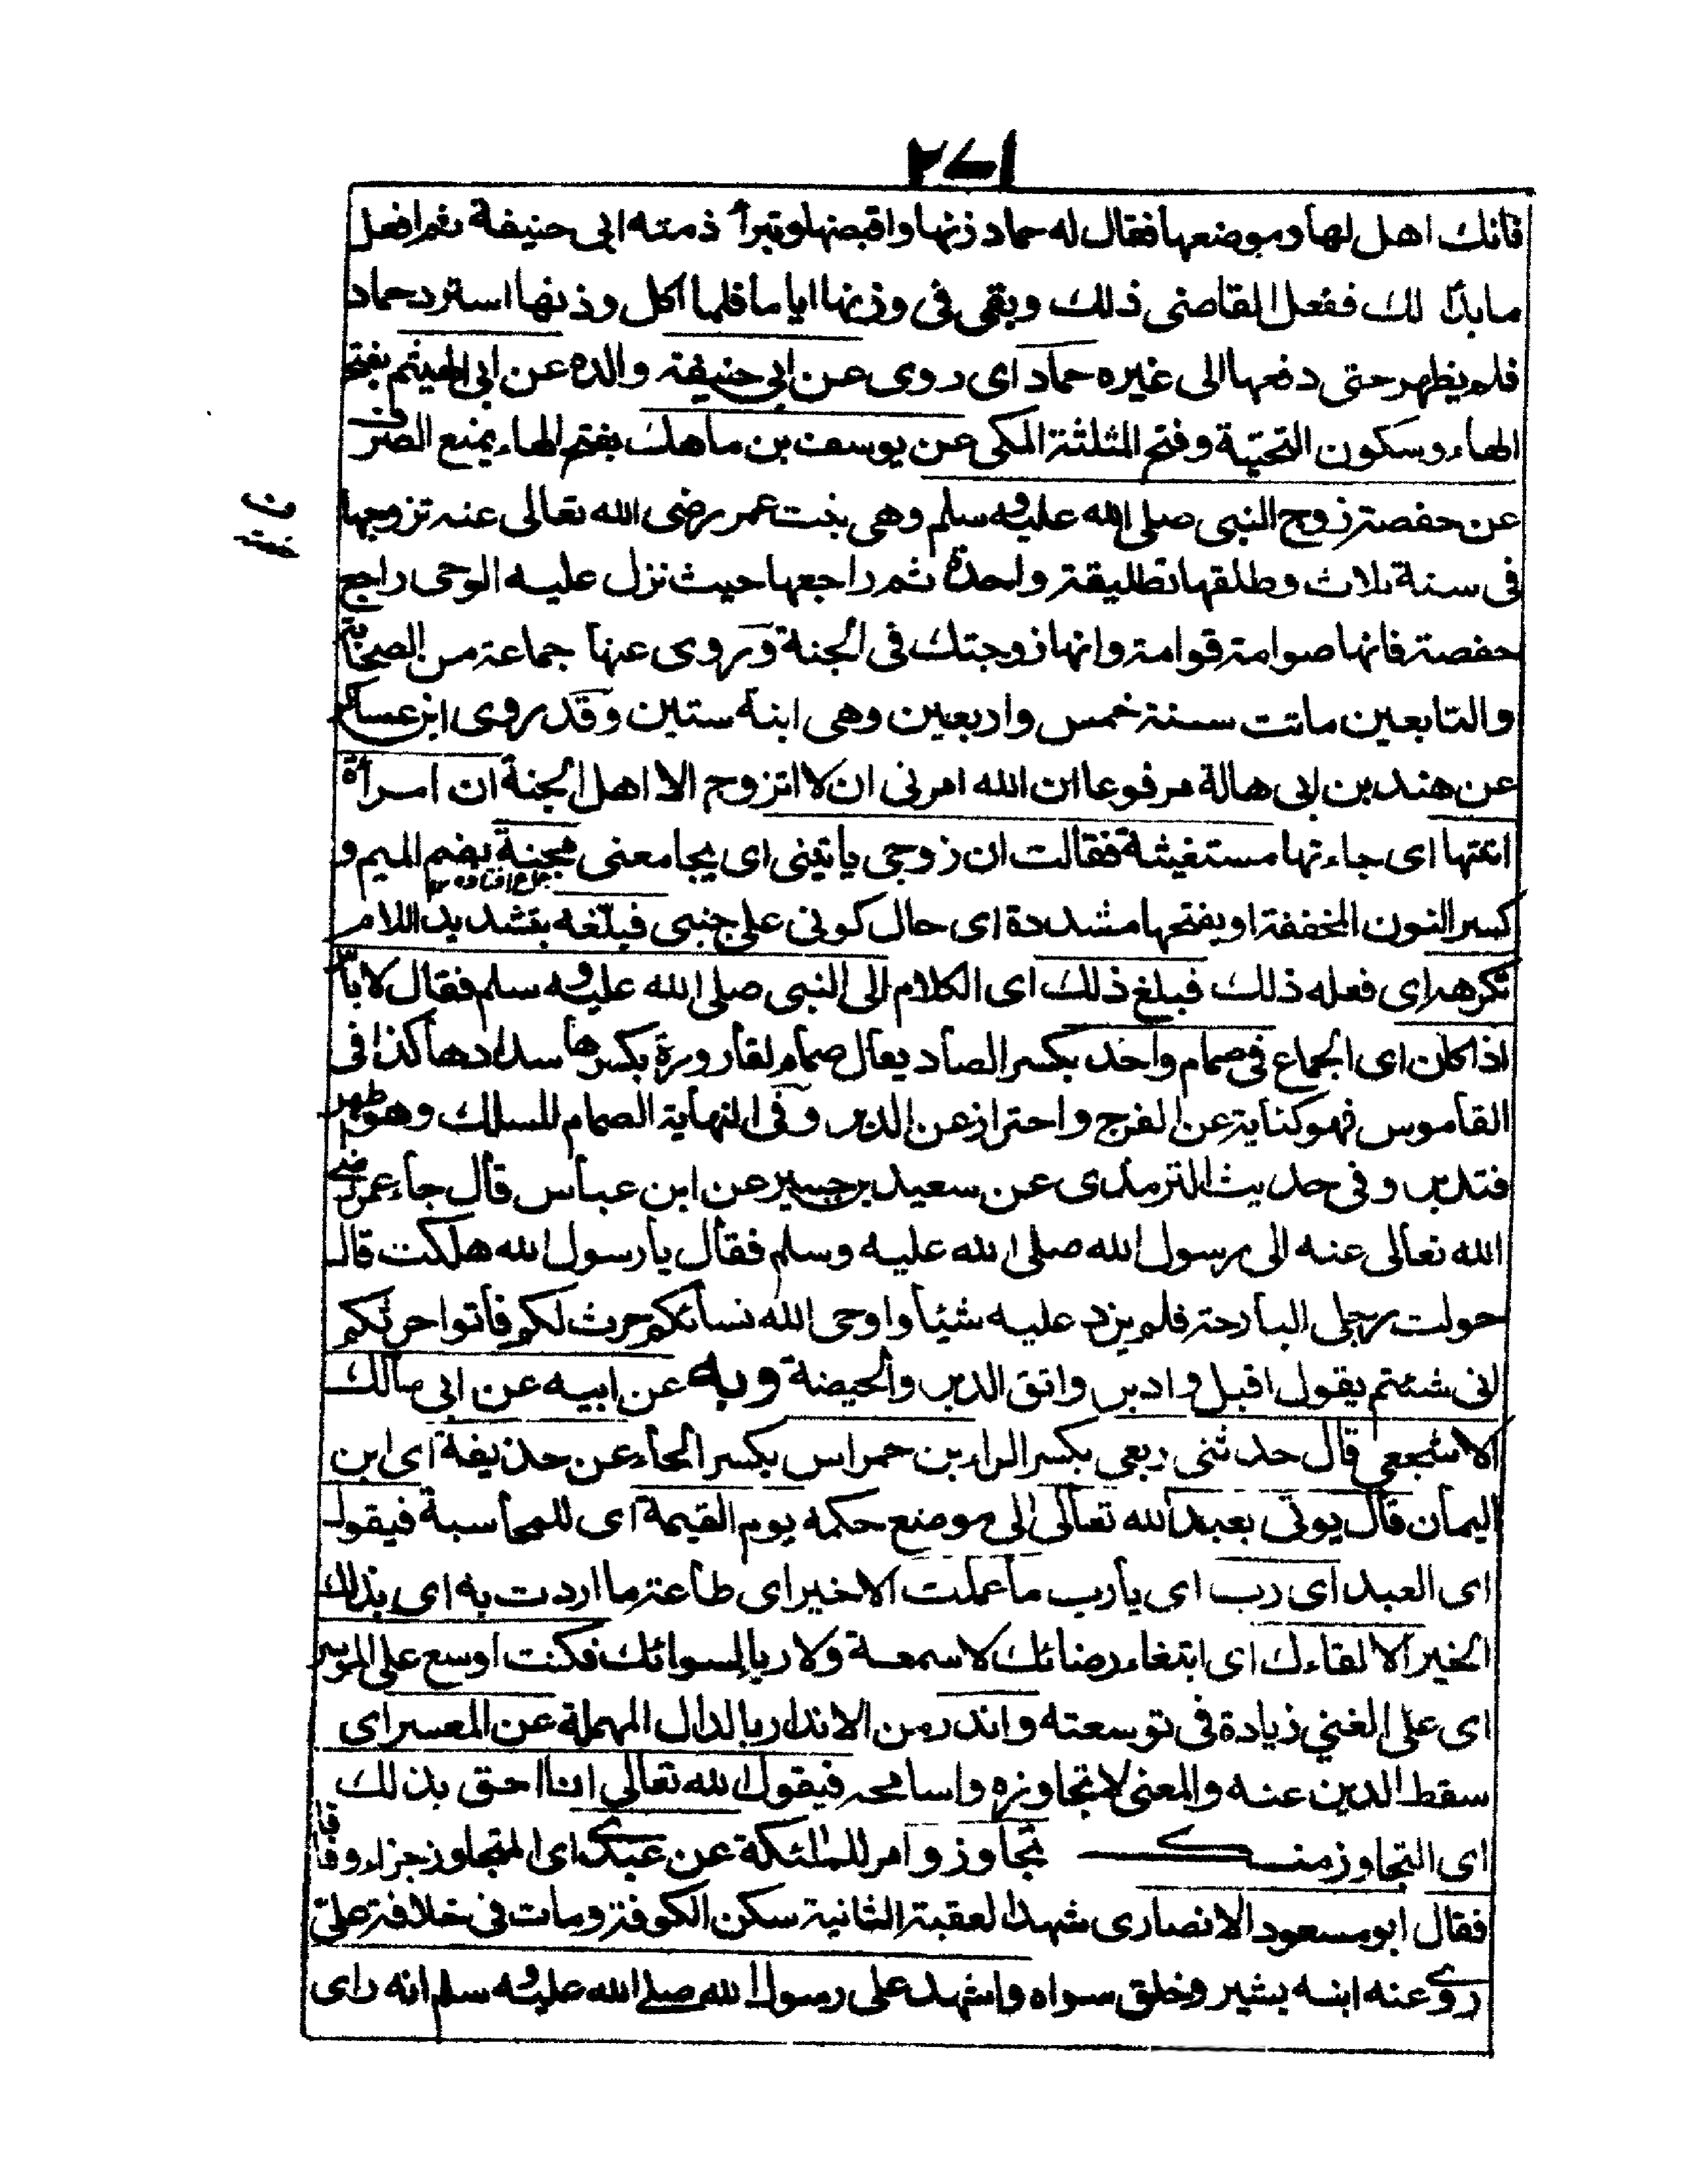 ٢٧١
فانك اهل لها وموضعها فقال له حماد زنها واقبضها وتبرأ ذمته ابى حنيفة ثم افعل
ما بدا لك ففعل القاضى ذلك وبقى فى وزنها اياما فلما اكمل وزنها استرد حماد
فلم يظهر حتى دفعها الى غيره حماد اى روى عن ابى حنيفة والده عن ابى الهيثم بفتح
الهاء وسكون التحتية وفتح المثلثة المكى عن يوسف بن ماهك بفتح الهاء يمنع الصرف
عن حفصة زوج النبى صلى الله عليه وسلم وهى بنت عمر رضى الله تعالى عنه تزوجها
فى سنة ثلاث وطلقها تطليقة واحدة ثم راجعها حيث نزل عليه الوحى راجع
حفصة فانها صوامة قوامة وانها زوجتك فى الجنة وروى عنها جماعة من الصحابة
والتابعين ماتت سنة خمس واربعين وهى ابنة ستين وقد روى ابن عساكر
عن هند بن ابى هالة مرفوعا ان الله امرنى ان لا اتزوج الا اهل الجنة ان امرأة
اتتها اى جاءتها مستغيثة فقالت ان زوجى ياتينى اى يجامعنى مجنبة بضم الميم و
كسر النون المخففة او بفتحها مشددة اى حال كونى على جنبى فبلغه بتشديد اللام
تكرهه اى فعله ذلك فبلغ ذلك اى الكلام الى النبى صلى الله عليه وسلم فقال لا باس
اذا كان اى الجماع فى صمام واحد بكسر الصاد يقال صمام لقارورة بكسرها سدادها كذا فى
القاموس فهو كناية عن الفرج واحتراز عن الدبر وفى النهاية الصمام للسلك وهو ظهر
فتدبر وفى حديث الترمذى عن سعيد بن جبير عن ابن عباس قال جاء عمر رضى
الله تعالى عنه الى رسول الله صلى الله عليه وسلم فقال يا رسول الله هلكت قال
حولت رجلى البارحة فلم يزد عليه شيئا واوحى الله نسائكم حرث لكم فأتوا حرثكم
انى شئتم يقول اقبل وادبر واتق الدبر والحيضة وبه عن ابيه عن ابى مالك
الاشجعى قال حدثنى ربعى بكسر الراء بن حمراس بكسر الحاء عن حذيفة اى ابن
اليمان قال يوتى بعبد الله تعالى الى موضع حكمه يوم القيمة اى للمحاسبة فيقول
اى العبد اى رب اى يا رب ما عملت الا خيرا اى طاعة ما اردت به اى بذلك
الخير الا لقاءك اى ابتغاء رضائك لا سمعة ولا ريا لسوائك فكنت اوسع على الموسر
اى على الغنى زيادة فى توسعته واندر من الاندار بالدال المهملة عن المعسر اى
سقط الدين عنه والمعنى لا تجاوزه واسامحه فيقول الله تعالى انا احق بذلك
اى التجاوز منك تجاوزوا امر للملئكة عن عبدى اى المتجاوز جزاء وفاقا
فقال ابو مسعود الانصارى شهد العقبة الثانية سكن الكوفة ومات فى خلافة على
روى عنه ابنه بشير وخلق سواه واشهد على رسول الله صلى الله عليه وسلم انه راى